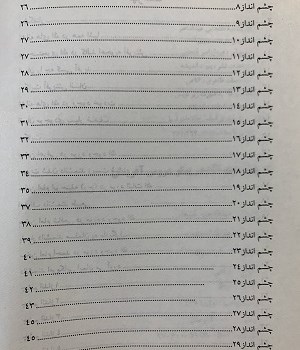 چشم انداز۸........۲۶
چشم انداز۹........۲۶
چشم انداز۱۰........۲۷
چشم انداز۱۱........۲۷
چشم انداز۱۲........۲۸
چشم انداز۱۳........۲۹
چشم انداز۱۴........۳۰
چشم انداز۱۵........۳۱
چشم انداز۱۶........۳۲
چشم انداز۱۷........۳۳
چشم انداز۱۸........۳۴
چشم انداز۱۹........۳۵
چشم انداز۲۰........۳۷
چشم انداز۲۱........۳۸
چشم انداز۲۲........۳۹
چشم انداز۲۳........۴۰
چشم انداز۲۴........۴۱
چشم انداز۲۵........۴۲
چشم انداز۲۶........۴۳
چشم انداز۲۷........۴۵
چشم انداز۲۸........۴۵
چشم انداز۲۹